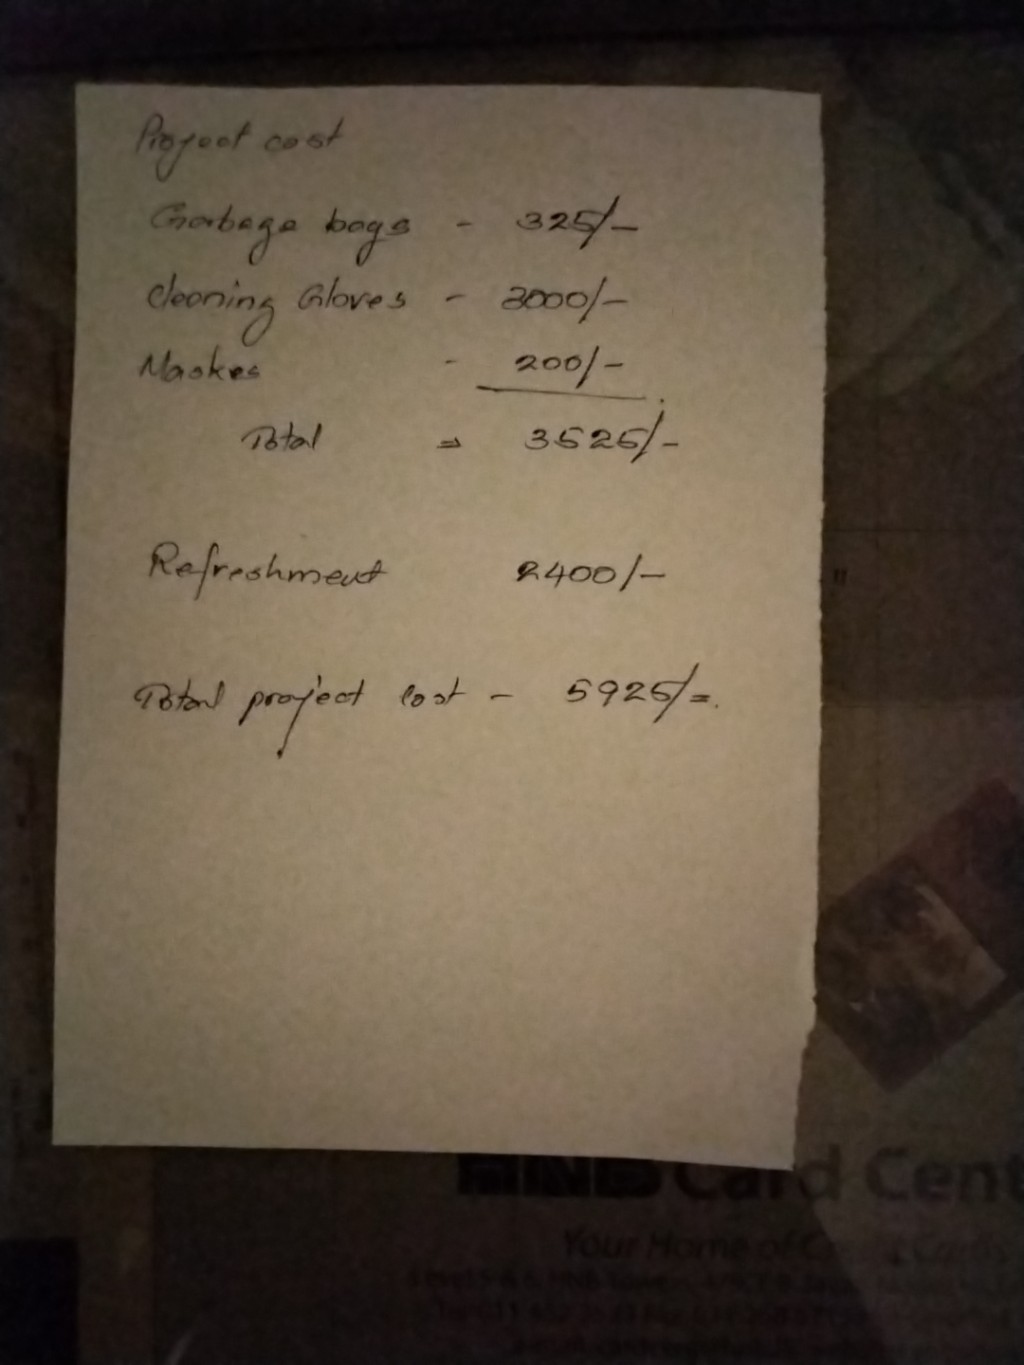 Project cost
Garbage bags - 325/-
Cleaning Gloves - 3000/-
Maskes - 200/-
Total = 3525/-
Refreshment 2400/-
Total project cost - 5925/=.
HNB Card Cent
Your Home of Credit Cards